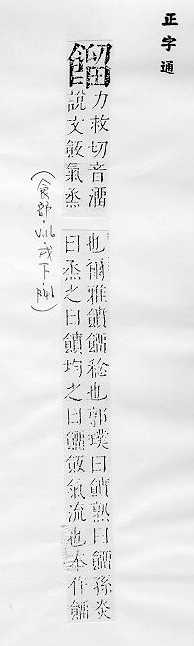 正字通
餾
力救切音溜
說文飯氣烝
也爾雅饙餾稔也郭璞曰饙熟曰餾孫炎
曰烝之曰饙均之曰餾飯氣流也本作餾
食部 戌下